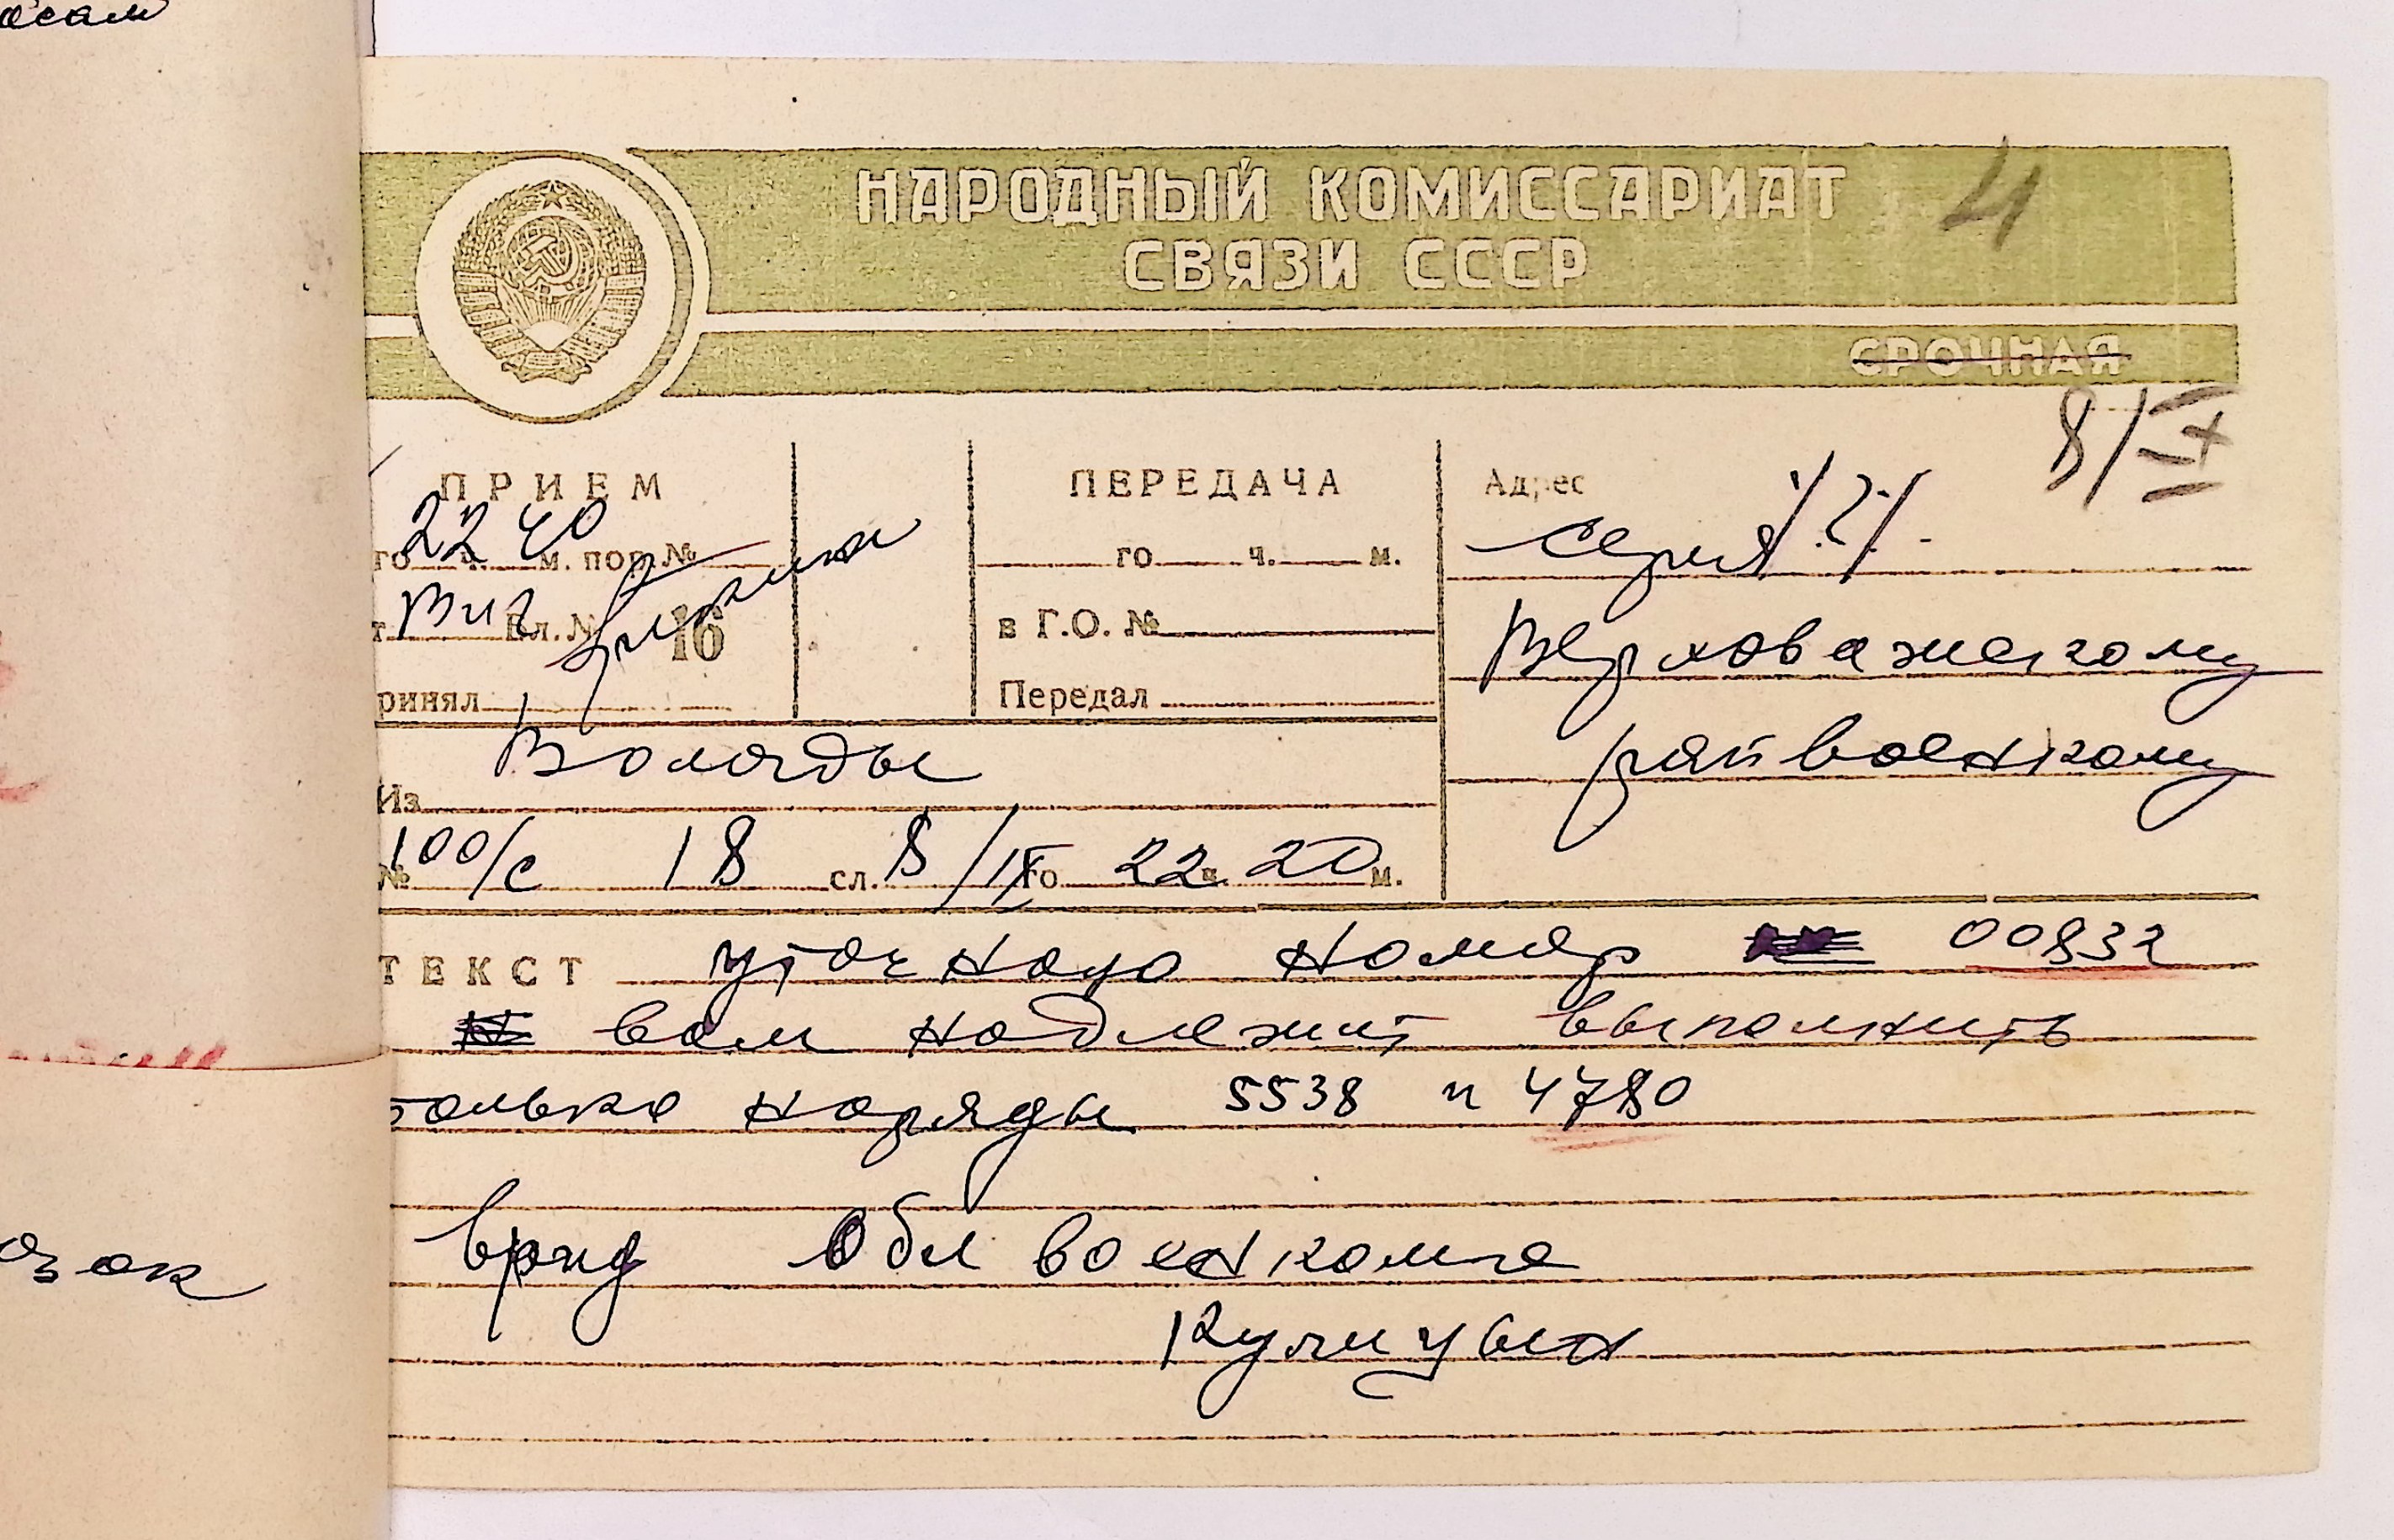 осам
НАРОДНЫЙ КОМИССАРИАТ
СВЯЗИ СССР
4
СРОЧНАЯ
8/IX
ПРИЕМ
22 40
го ч. м. пор. №
Бл. № 16
ринял
ПЕРЕДАЧА
го ч. м.
в Г.О. №
Передал
Адрес
серия
Верховажскому
райвоенкому
Из Вологды
№ 100/с 18 сл. 8/IX го 22 ч. 20 м.
ТЕКСТ уточняю номер 00832
вам надлежит выполнить
только наряды 5538 и 4780
врид Облвоенкома